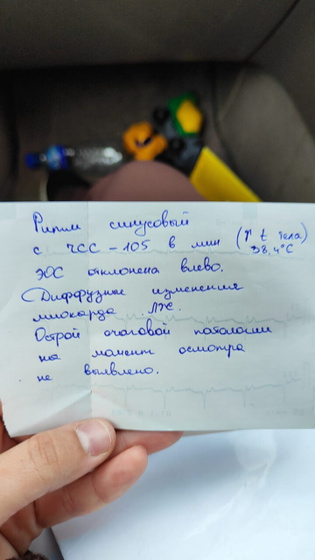 Ритм синусовый
с ЧСС - 105 в мин (↑ t тела)
38,4°C
ЭОС отклонена влево.
Диффузные изменения
миокарда ЛЖ.
Острой очаговой патологии
на момент осмотра
не выявлено.